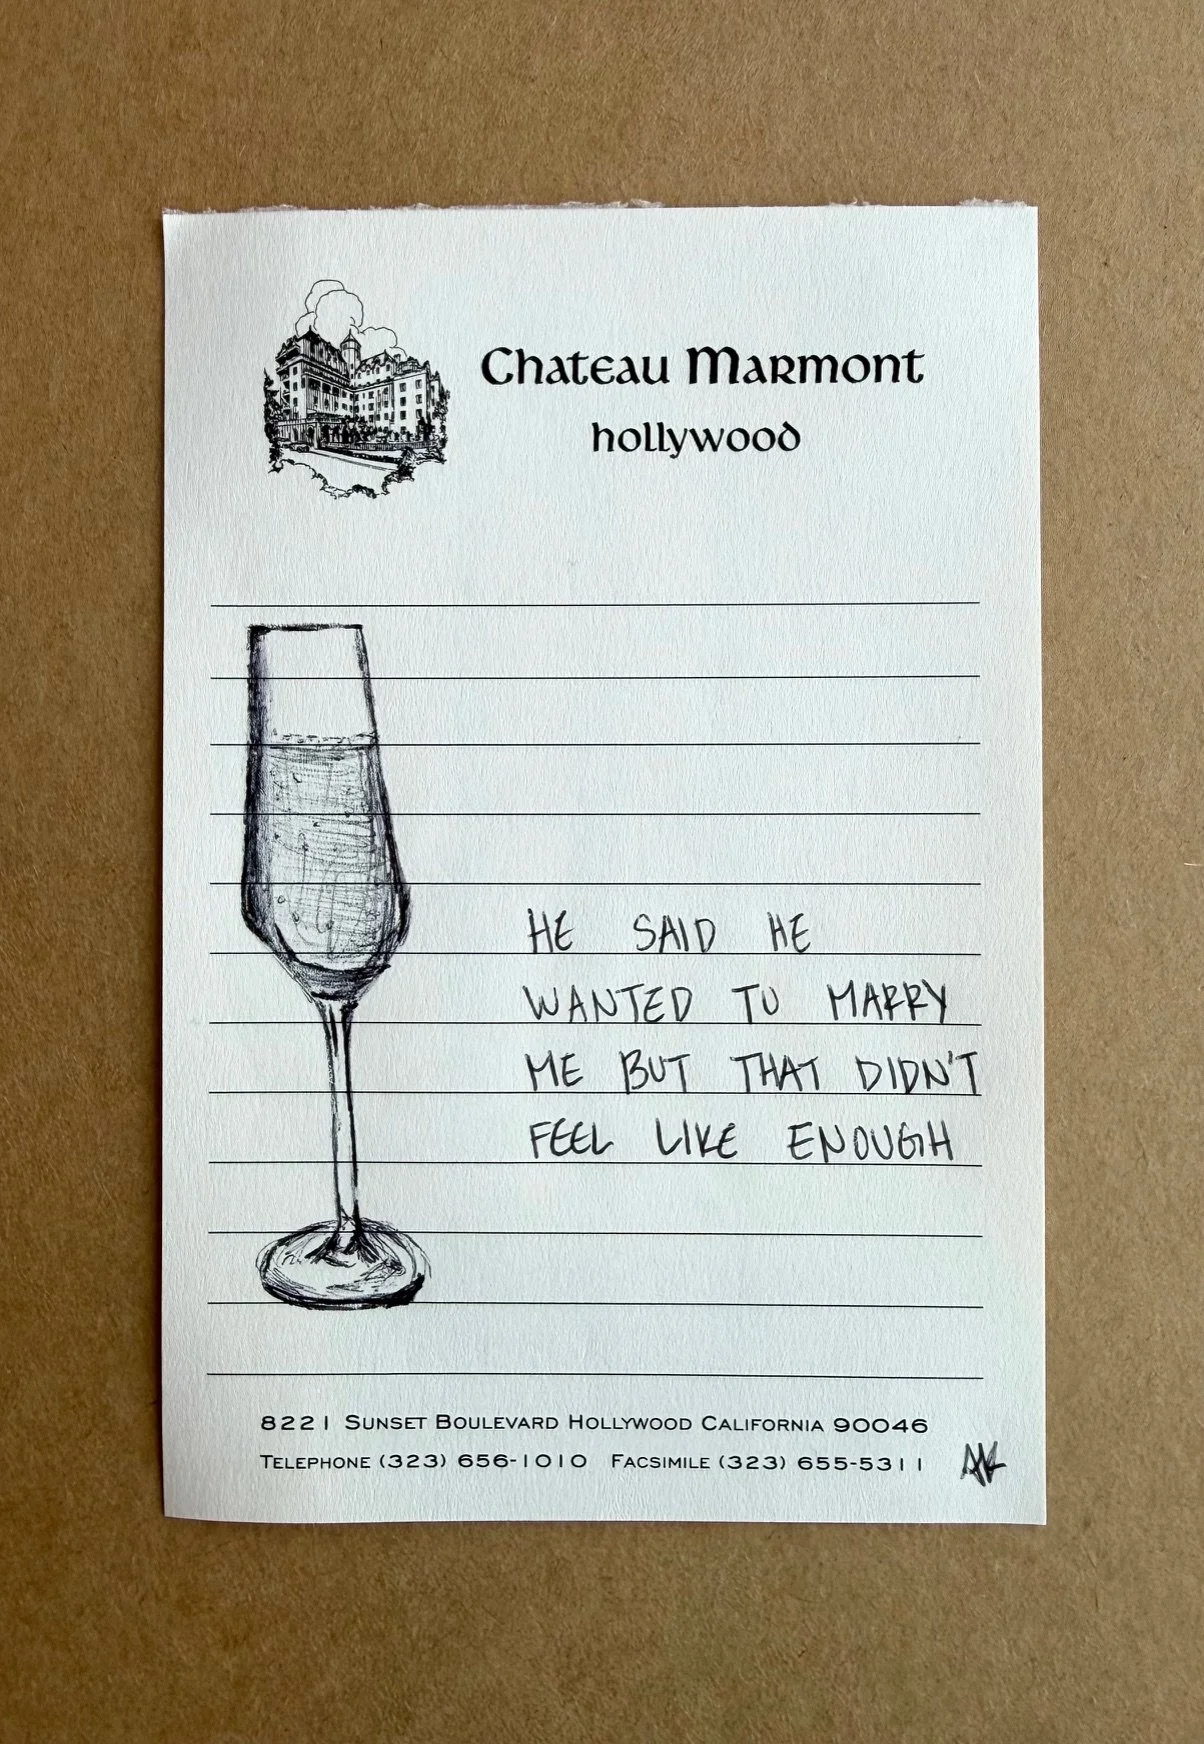 Chateau Marmont
hollywood
HE SAID HE
WANTED TO MARRY
ME BUT THAT DIDN'T
FEEL LIKE ENOUGH
8221 SUNSET BOULEVARD HOLLYWOOD CALIFORNIA 90046
TELEPHONE (323) 656-1010 FACSIMILE (323) 655-5311